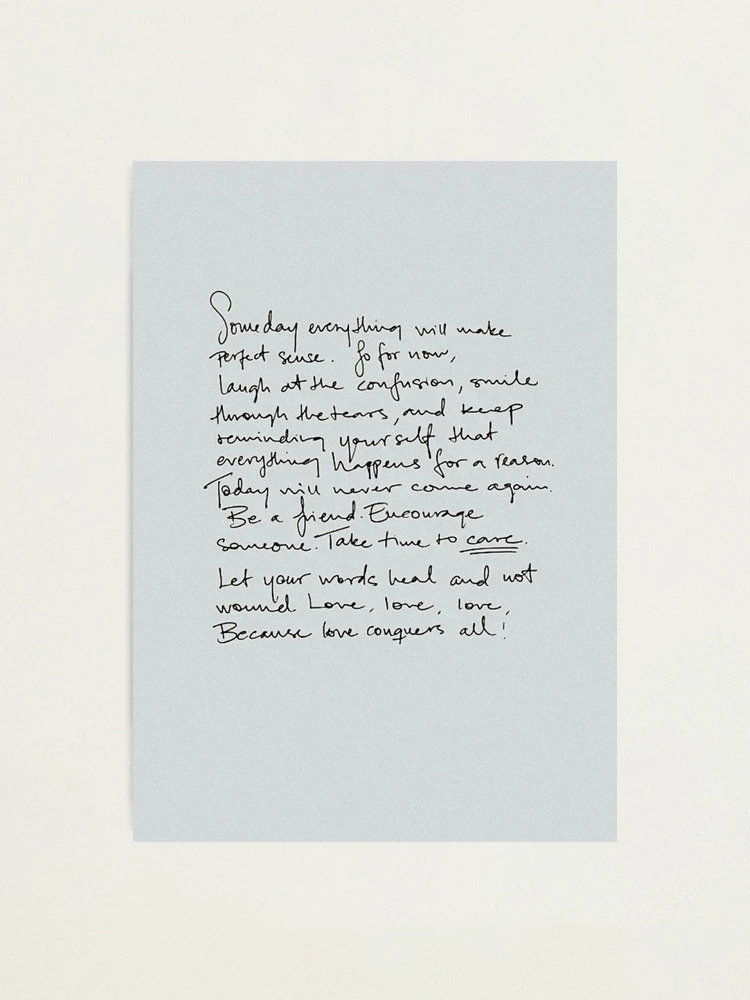 Someday everything will make
perfect sense. So for now,
laugh at the confusion, smile
through the tears, and keep
reminding yourself that
everything happens for a reason.
Today will never come again.
Be a friend. Encourage
someone. Take time to care.
Let your words heal and not
wound Love, love, love,
Because love conquers all!